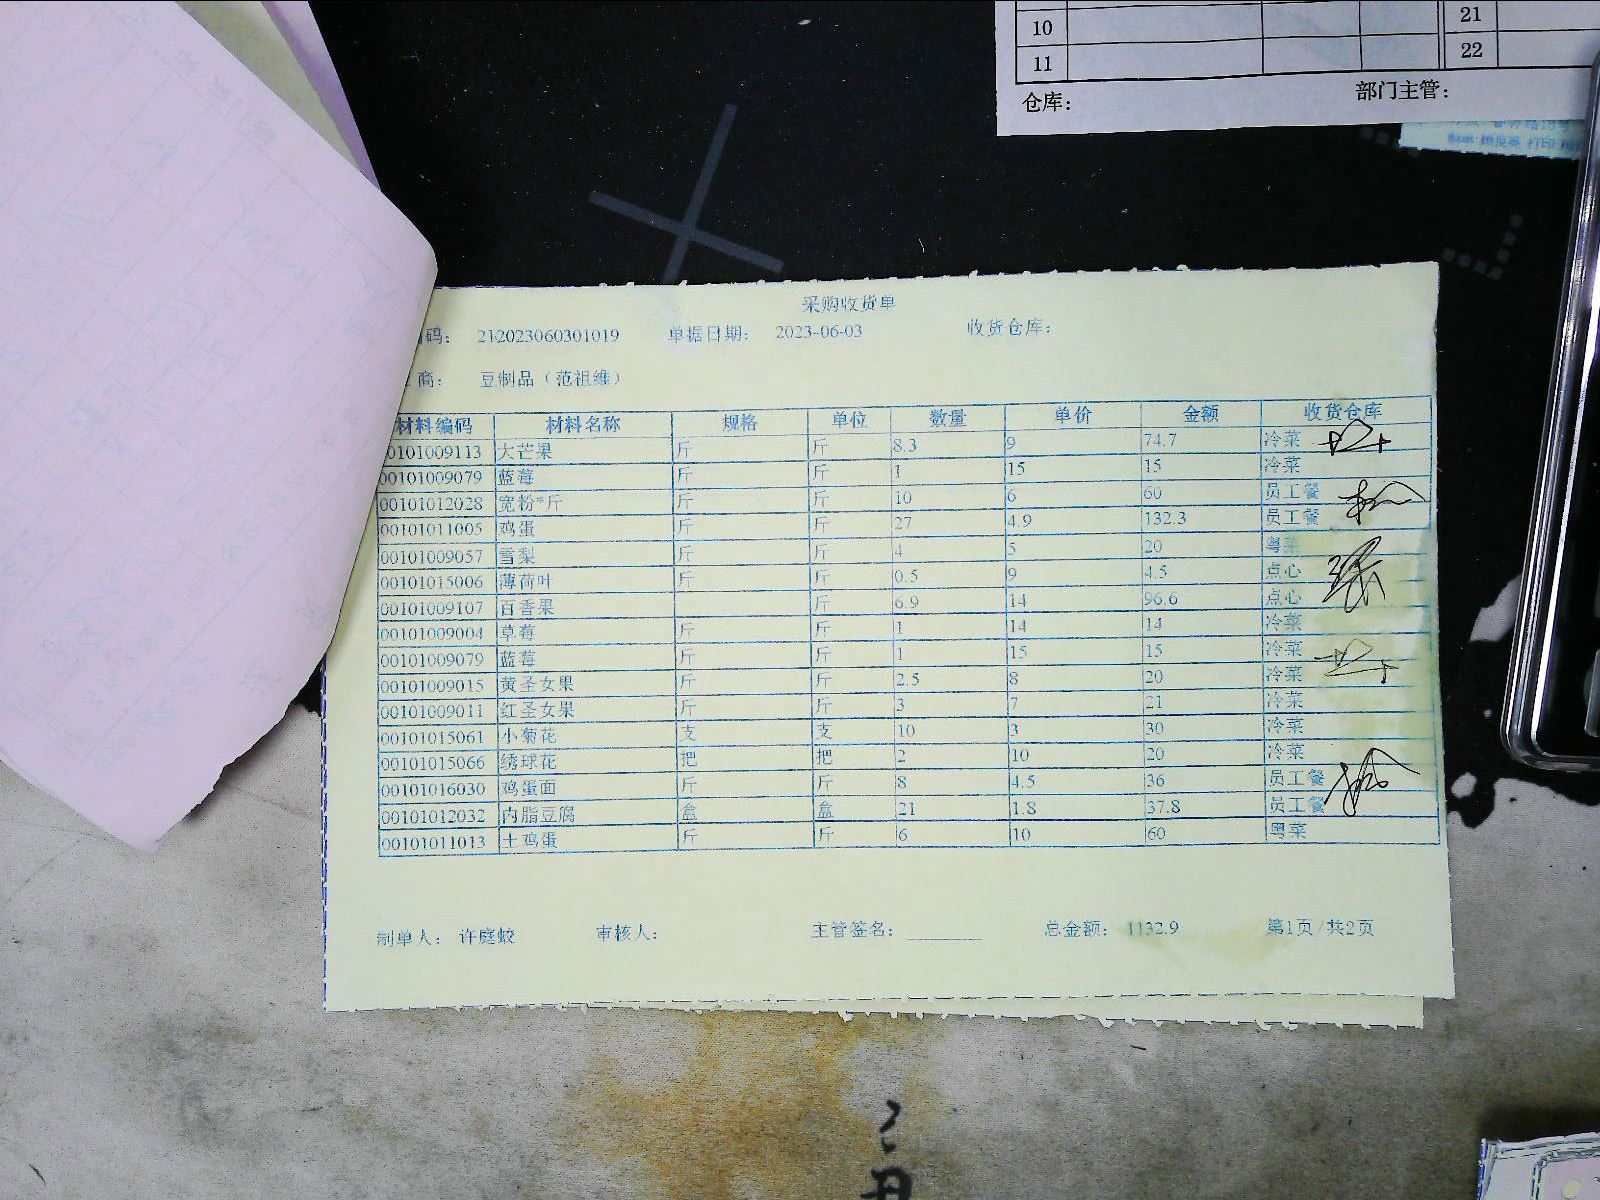 10
21
11
22
仓库：
部门主管：
采购收货单
码： 212023060301019 单据日期： 2023-06-03 收货仓库：
商： 豆制品（范祖维）
材料编码 材料名称 规格 单位 数量 单价 金额 收货仓库
00101009113 大芒果 斤 斤 8.3 9 74.7 冷菜
00101009079 蓝莓 斤 斤 1 15 15 冷菜
00101012028 宽粉*斤 斤 斤 10 6 60 员工餐
00101011005 鸡蛋 斤 斤 27 4.9 132.3 员工餐
00101009057 雪梨 斤 斤 4 5 20 粤菜
00101015006 薄荷叶 斤 斤 0.5 9 4.5 点心
00101009107 百香果 斤 6.9 14 96.6 点心
00101009004 草莓 斤 斤 1 14 14 冷菜
00101009079 蓝莓 斤 斤 1 15 15 冷菜
00101009015 黄圣女果 斤 斤 2.5 8 20 冷菜
00101009011 红圣女果 斤 斤 3 7 21 冷菜
00101015061 小菊花 支 支 10 3 30 冷菜
00101015066 绣球花 把 把 2 10 20 冷菜
00101016030 鸡蛋面 斤 斤 8 4.5 36 员工餐
00101012032 内脂豆腐 盒 盒 21 1.8 37.8 员工餐
00101011013 土鸡蛋 斤 斤 6 10 60 粤菜
制单人： 许庭蛟 审核人： 主管签名：________ 总金额： 1132.9 第1页/共2页